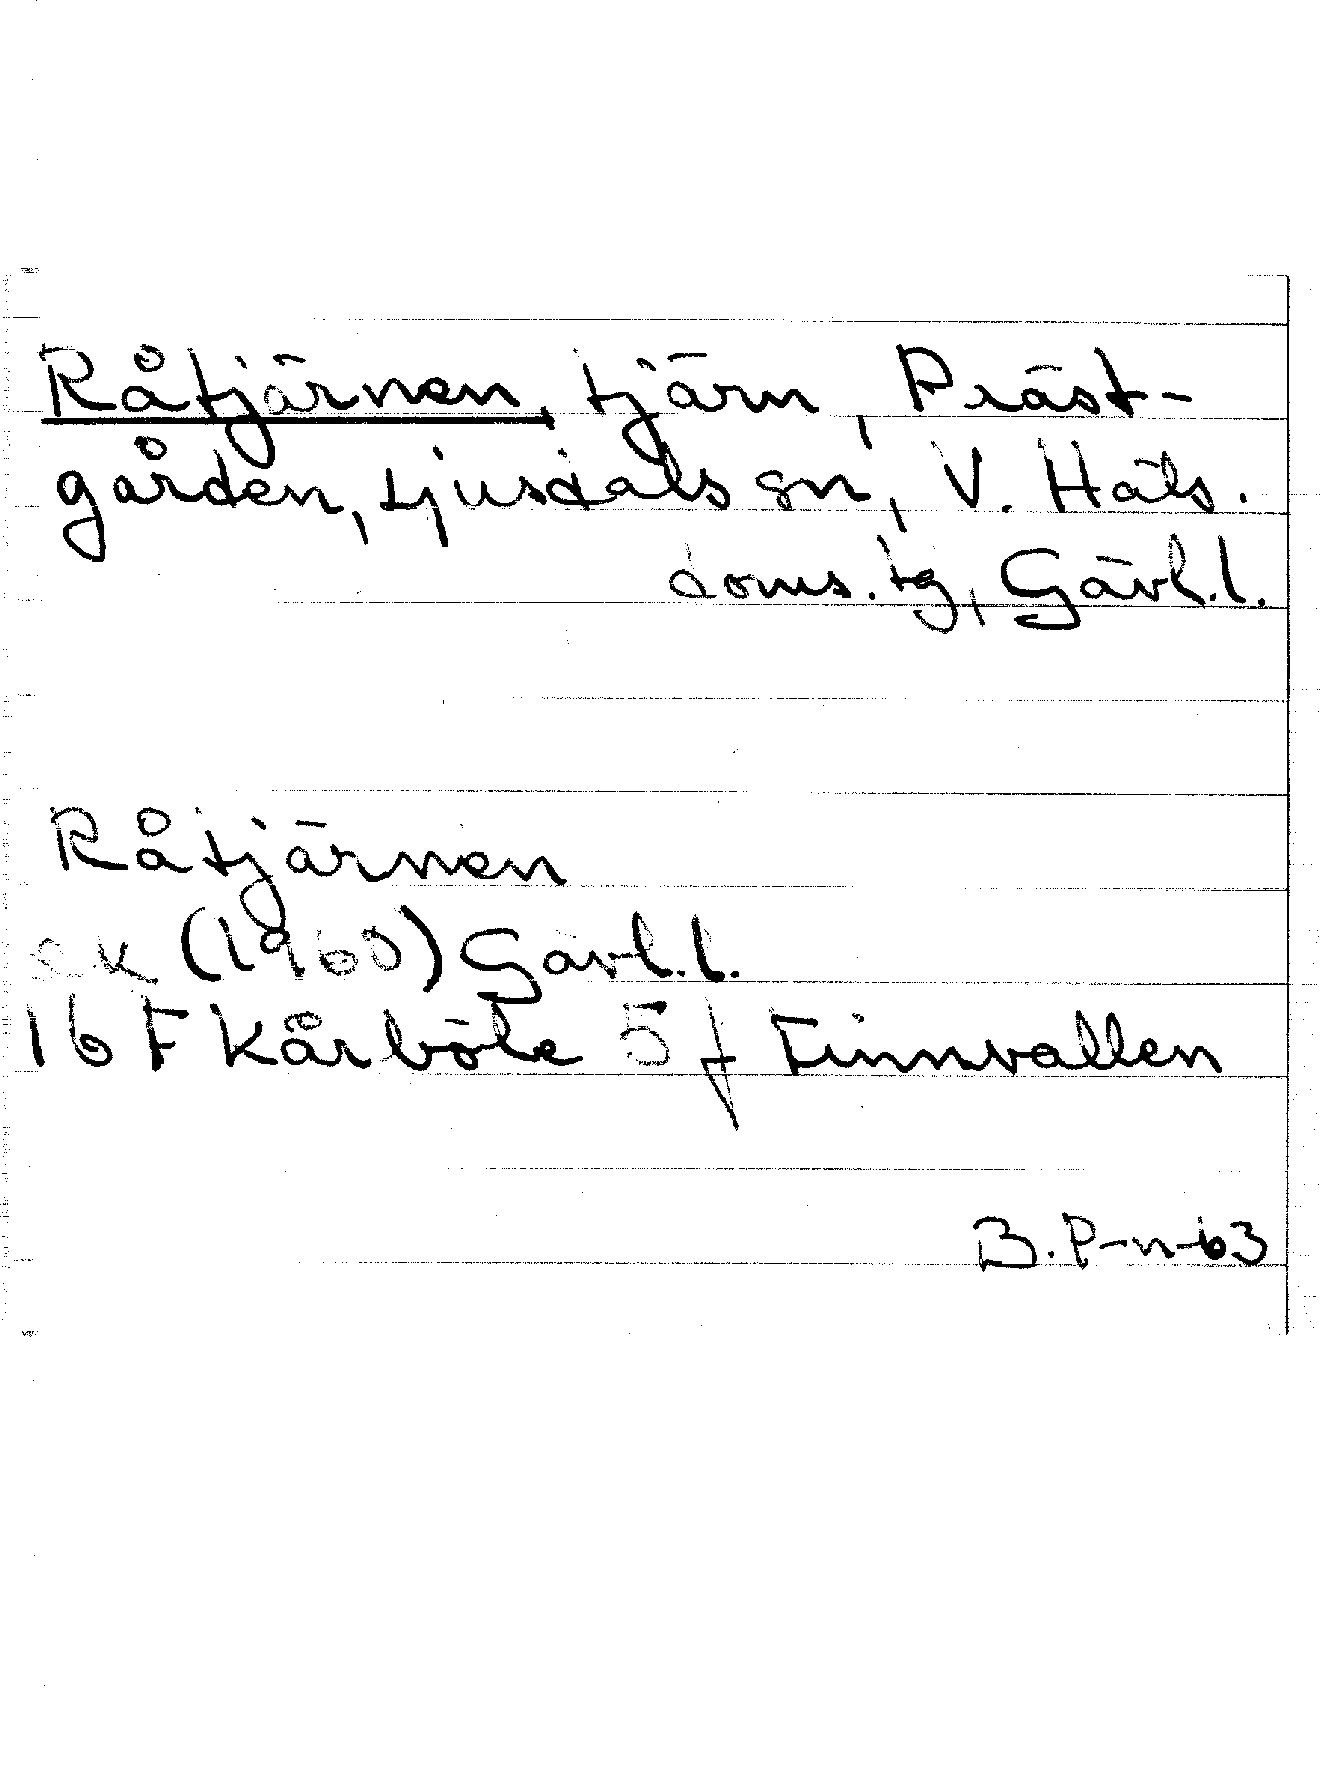 Råtjärnen, tjärn, Präst-
gården, Ljusdals sn, V. Häls.
doms. tg, Gävl.l.
Råtjärnen
ek (1960) Gävl.l.
16 F Kårböle 5 f Finnvallen
B. P-n-63